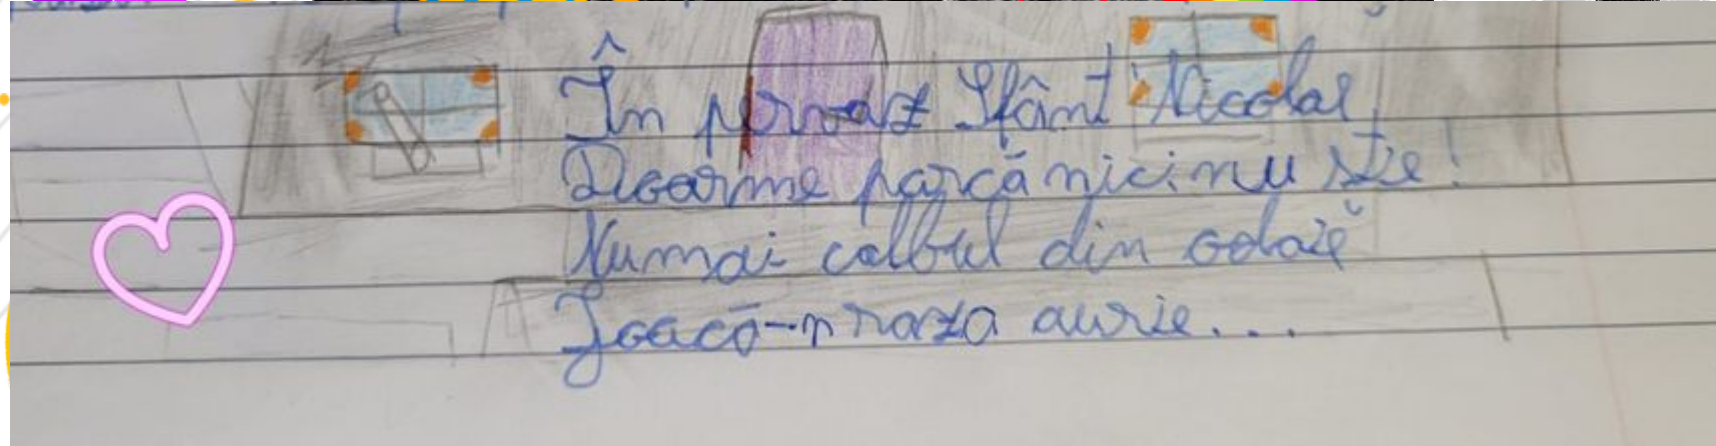 În pervaz Sfânt Nicolae,
Doarme parcă nici nu știe!
Numai colbul din odaie
Joacă-n raza aurie...